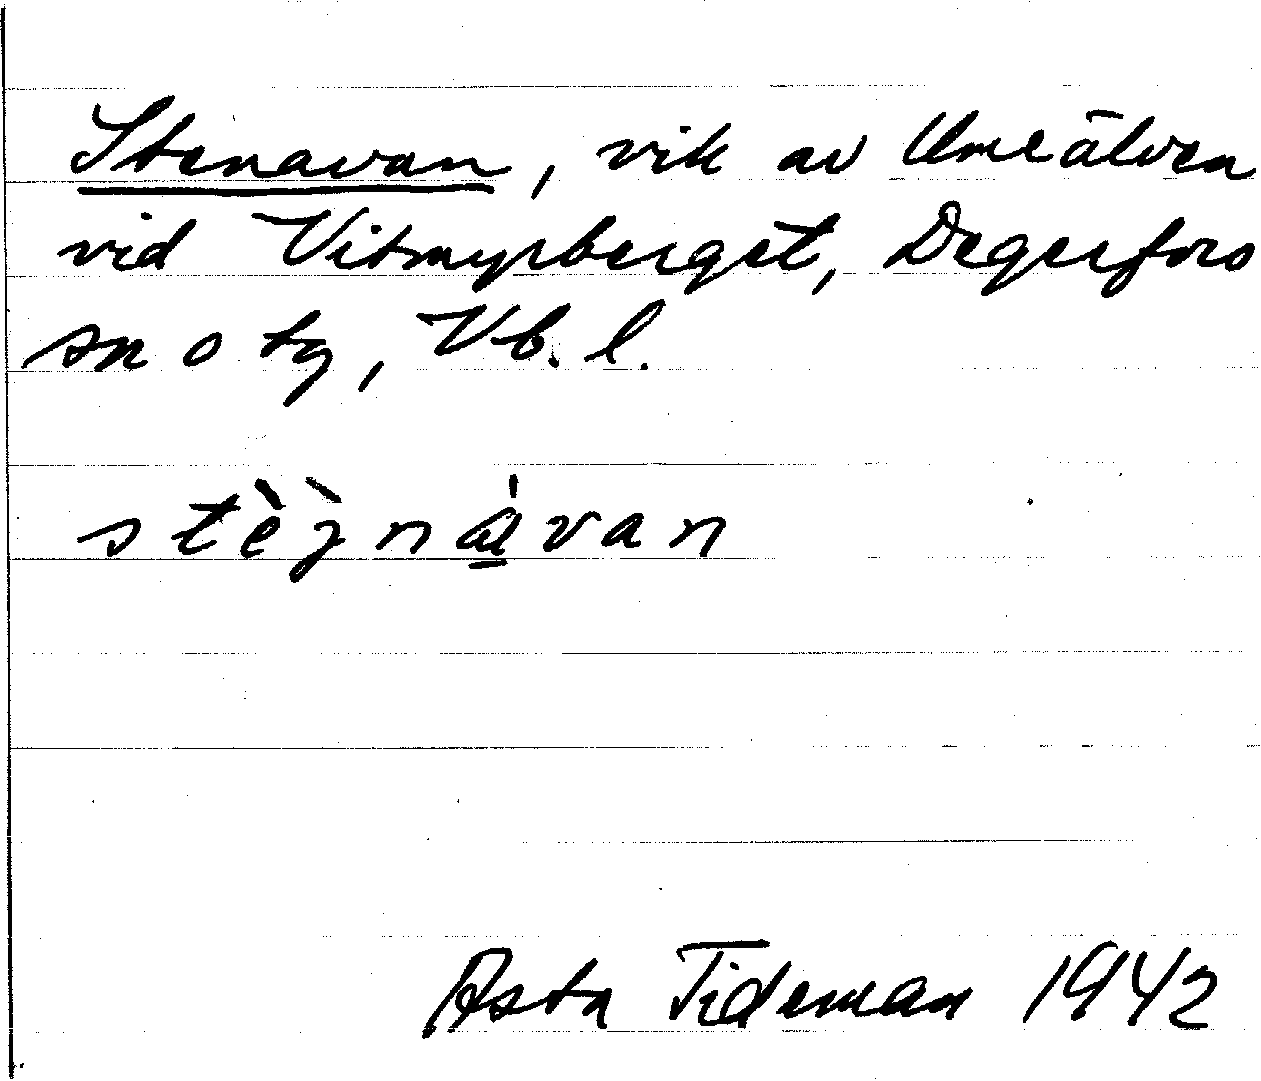 Stenavan, vik av Umeälven
vid Vitmyrberget, Degerfors
sn o tg, Vb. l.
stèj̀nàvan
Asta Tideman 1942